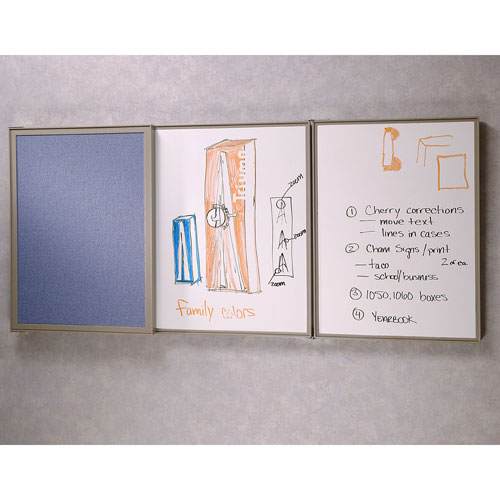 zoom
zoom
zoom
Family colors
① Cherry corrections
— move text
— lines in cases
② Cham Signs/print
— taco 2 of ea
— school/business
③ 1050, 1060 boxes
④ YEARBOOK